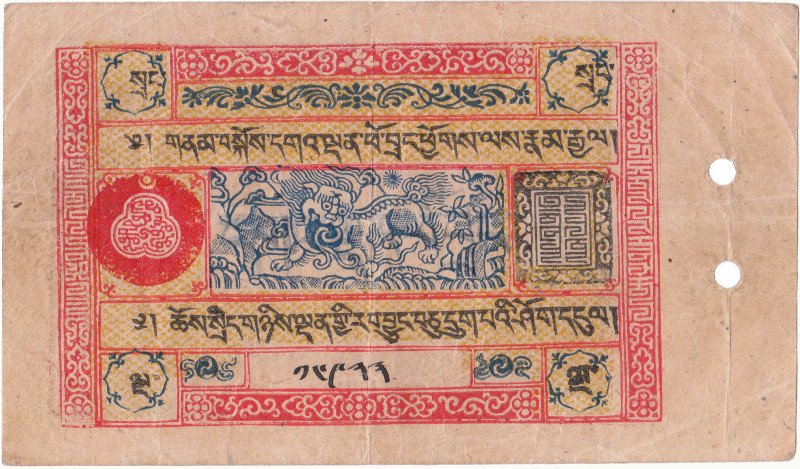 སྲང སྲང
༄། གནམ་བསྐོས་དགའ་ལྡན་ཕོ་བྲང་ཕྱོགས་ལས་རྣམ་རྒྱལ།
༄། ཆོས་སྲིད་གཉིས་ལྡན་གྱི་རབ་བྱུང་བཅུ་དྲུག་པའི་ཤོག་དངུལ།
ལྔ ལྔ